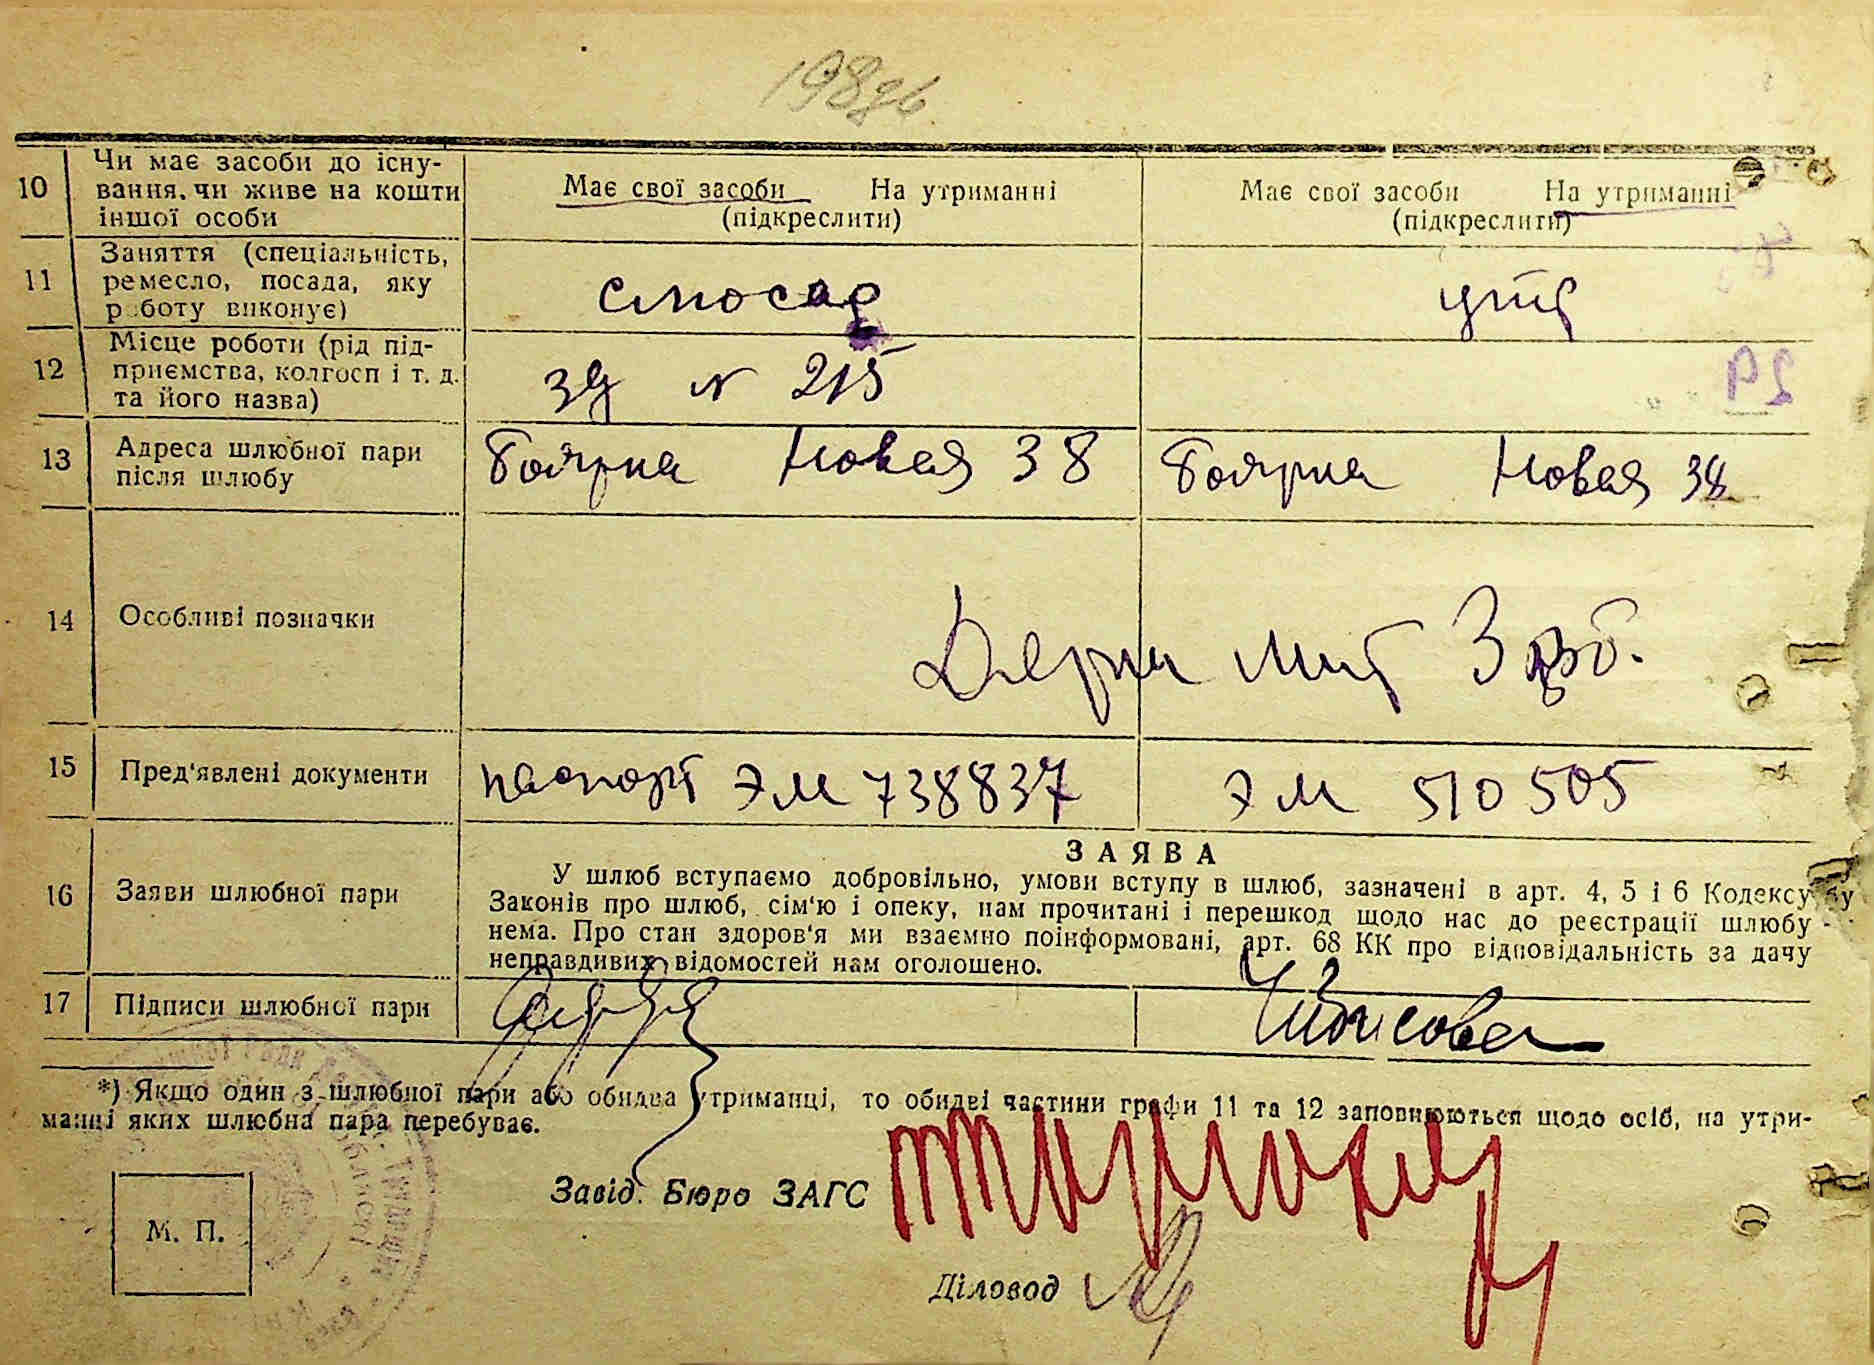 10 Чи має засоби до існу-
вання, чи живе на кошти
іншої особи
Має свої засоби На утриманні
(підкреслити)
Має свої засоби На утриманні
(підкреслити)
11 Заняття (спеціальність,
ремесло, посада, яку
роботу виконує)
слюсар
утр
12 Місце роботи (рід під-
приємства, колгосп і т. д.
та його назва)
зд № 215
13 Адреса шлюбної пари
після шлюбу
Боярка Новая 38
Боярка Новая 38
14 Особливі позначки
15 Пред'явлені документи
паспорт ЭМ 738837
ЭМ 510505
16 Заяви шлюбної пари
ЗАЯВА
У шлюб вступаємо добровільно, умови вступу в шлюб, зазначені в арт. 4, 5 і 6 Кодексу
Законів про шлюб, сім'ю і опеку, нам прочитані і перешкод щодо нас до реєстрації шлюбу
нема. Про стан здоров'я ми взаємно поінформовані, арт. 68 КК про відповідальність за дачу
неправдивих відомостей нам оголошено.
17 Підписи шлюбної пари
*) Якщо один з шлюбної пари або обидва утриманці, то обидві частини графи 11 та 12 заповнюються щодо осіб, на утри-
манні яких шлюбна пара перебуває.
Завід. Бюро ЗАГС
М. П.
Діловод